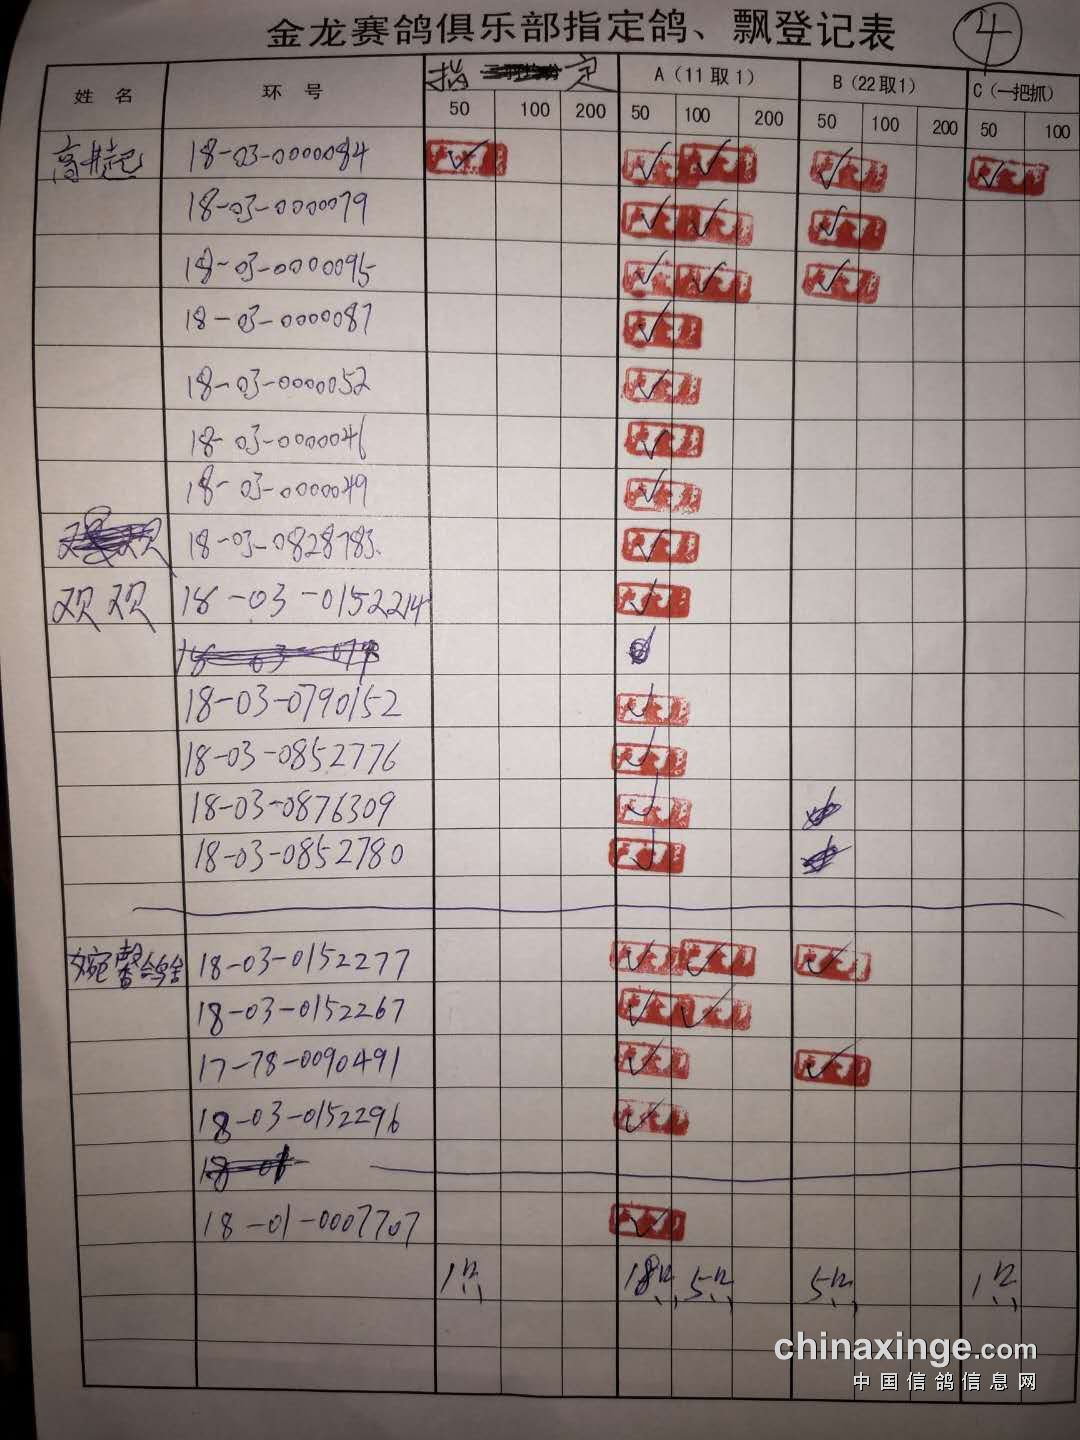 金龙赛鸽俱乐部指定鸽、飘登记表
4
姓 名 环 号 指 定 A（11取1） B（22取1） C（一把抓）
50 100 200 50 100 200 50 100 200 50 100
18-03-0000084
18-03-0000079
18-03-0000095
18-03-0000087
18-03-0000052
18-03-0000046
18-03-0000049
18-03-0828783
双双 18-03-0152214
18-03-0790152
18-03-0852776
18-03-0876309
18-03-0852780
婉馨鸽舍 18-03-0152277
18-03-0152267
17-78-0090491
18-03-0152296
18-01-0007707
1只 18只 5只 5只 1只
chinaxinge.com
中国信鸽信息网